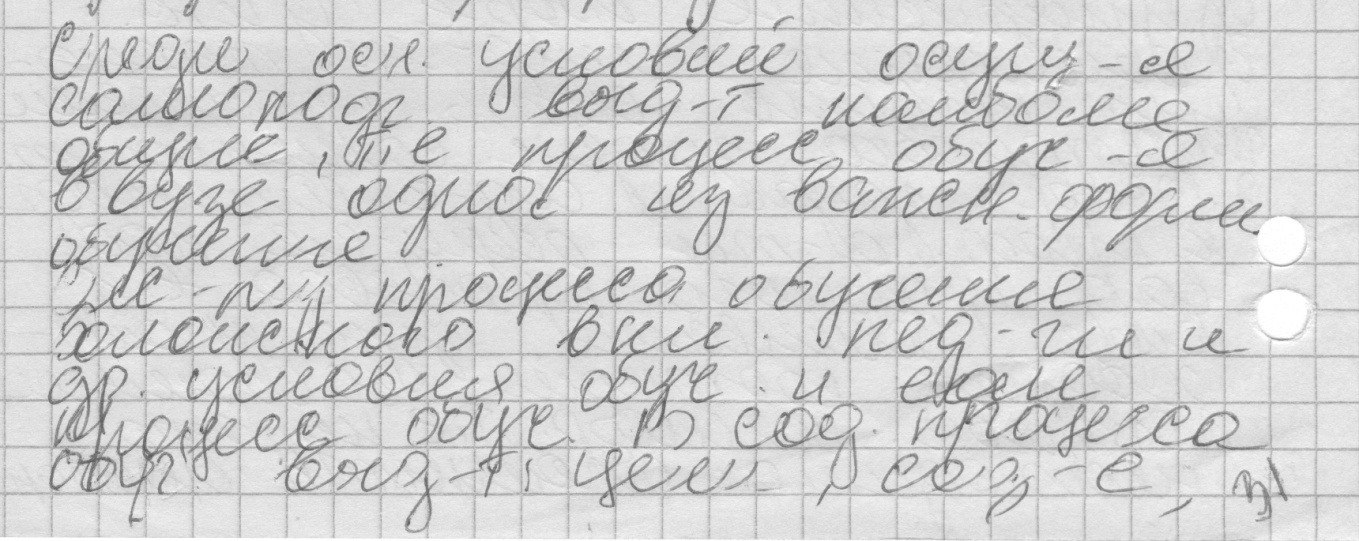 Среди осн. условий осущ-я
самоподг выд-т наиболее
общие, т.е процесс обуч-я
в вузе одной из важн. форм
обучения
процесса обучения
вкл. пед-ги и
др. условия обуч. и сам
процесс обуч. В сод. процесса
обуч. выд-т: цели, сод-е,